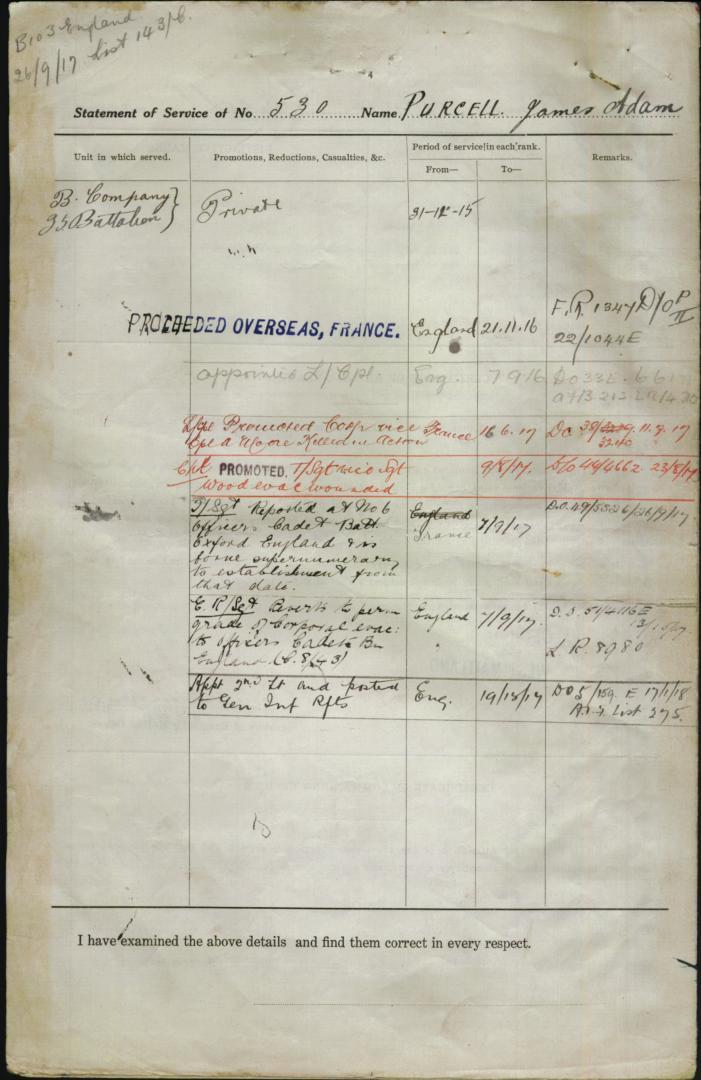 B103 England
26/9/17 List 143/6.
Statement of Service of No. 530 Name. PURCELL. James Adam
Unit in which served.
Promotions, Reductions, Casualties, &c.
Period of service in each rank.
From—
To—
Remarks.
B. Company
35 Battalion
Private
31-12-15
PROCEEDED OVERSEAS, FRANCE.
England 21.11.16
F.R. 1347 D/O P/II
22/1044E
appointed L/Cpl. Eng. 7 9 16 DO 33E
L/Cpl Promoted Corp vice France 16.6.17 Do 11.7.17
Cpl A Moore Killed in Action 3240
Cpl PROMOTED. T/Sgt vice Sgt 9/8/17. D/o 44/4662. 23/8/17
Wood evac wounded
T/Sgt Reported at No 6 England D.O. 49/5326/26/9/17.
Officers Cadet Batt France 7/9/17
Oxford England & is
borne supernumerary
to establishment from
that date.
E.R/Sgt Reverts to perm England 7/9/17. D.O. 54/4116E
grade of Corporal evac: 13/10/17
to Officers Cadet Bn L.R. 8980
England. (C. 8/43)
Appt 2nd Lt and posted Eng. 19/12/17 DO 5/159. E 17/1/18
to Gen Inf Rfts A.I.F. List 275.
I have examined the above details and find them correct in every respect.